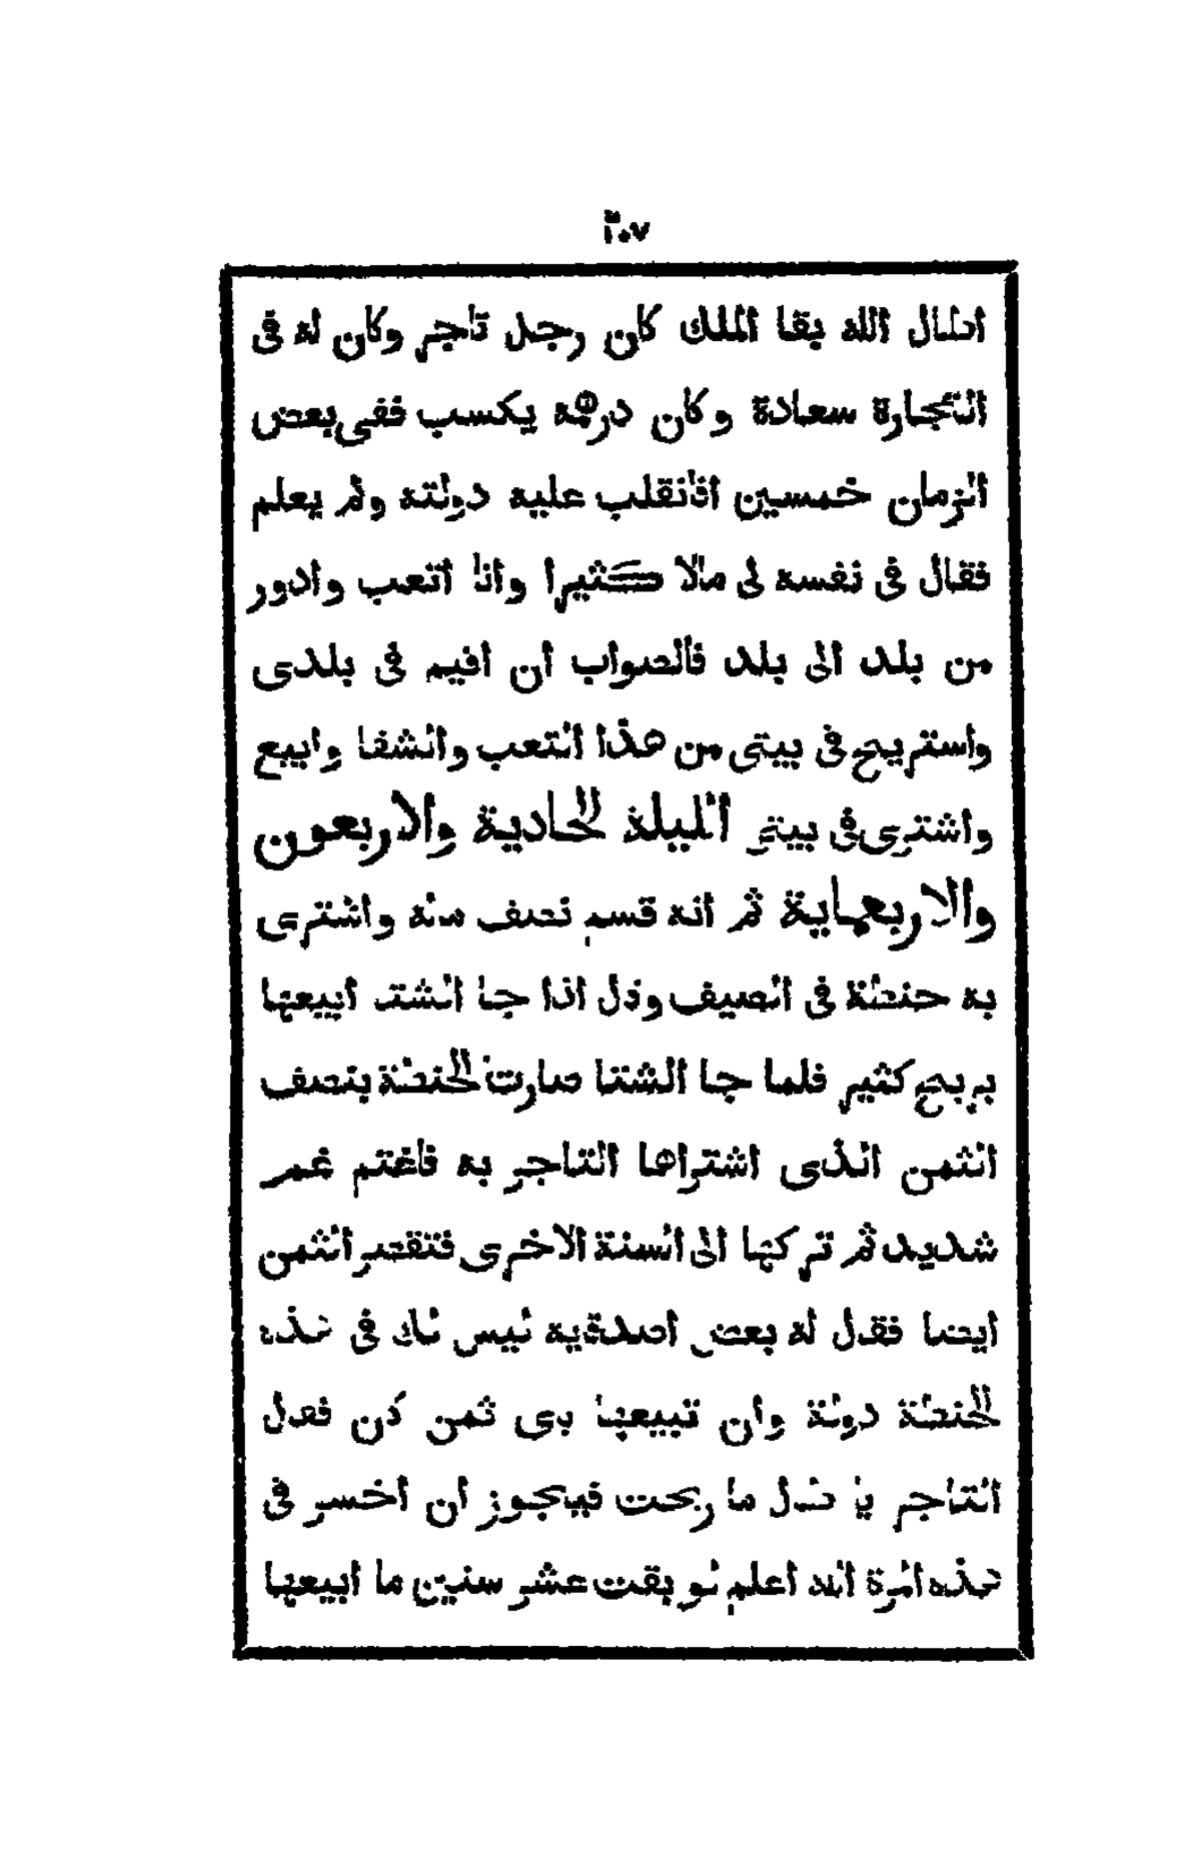 ٢٠٧
اطال الله بقا الملك كان رجل تاجر وكان له فى
التجارة سعادة وكان درهمه يكسب ففى بعض
الزمان خمسين افانقلب عليه دولته ولم يعلم
فقال فى نفسه لى مالا كثيرا وانا اتعب وادور
من بلد الى بلد فالصواب ان اقيم فى بلدى
واستريح فى بيتى من هذا التعب والشقا وابيع
واشترى فى بيتى الليلة الحادية والاربعون
والاربعماية ثم انه قسم نصف منه واشترى
به حنطة فى الصيف وقال اذا جا الشتا ابيعها
بربح كثير فلما جا الشتا صارت الحنطة بنصف
الثمن الذى اشتراها التاجر به فاغتم غمر
شديد ثم تركها الى السنة الاخرى فنقص الثمن
ايضا فقال له بعض اصدقيه ليس لك فى هذه
الحنطة دولة وان تبيعها باى ثمن كان فقال
التاجر يا طال ما ربحت فيجوز ان اخسر فى
هذه المرة الله اعلم لو بقت عشر سنين ما ابيعها